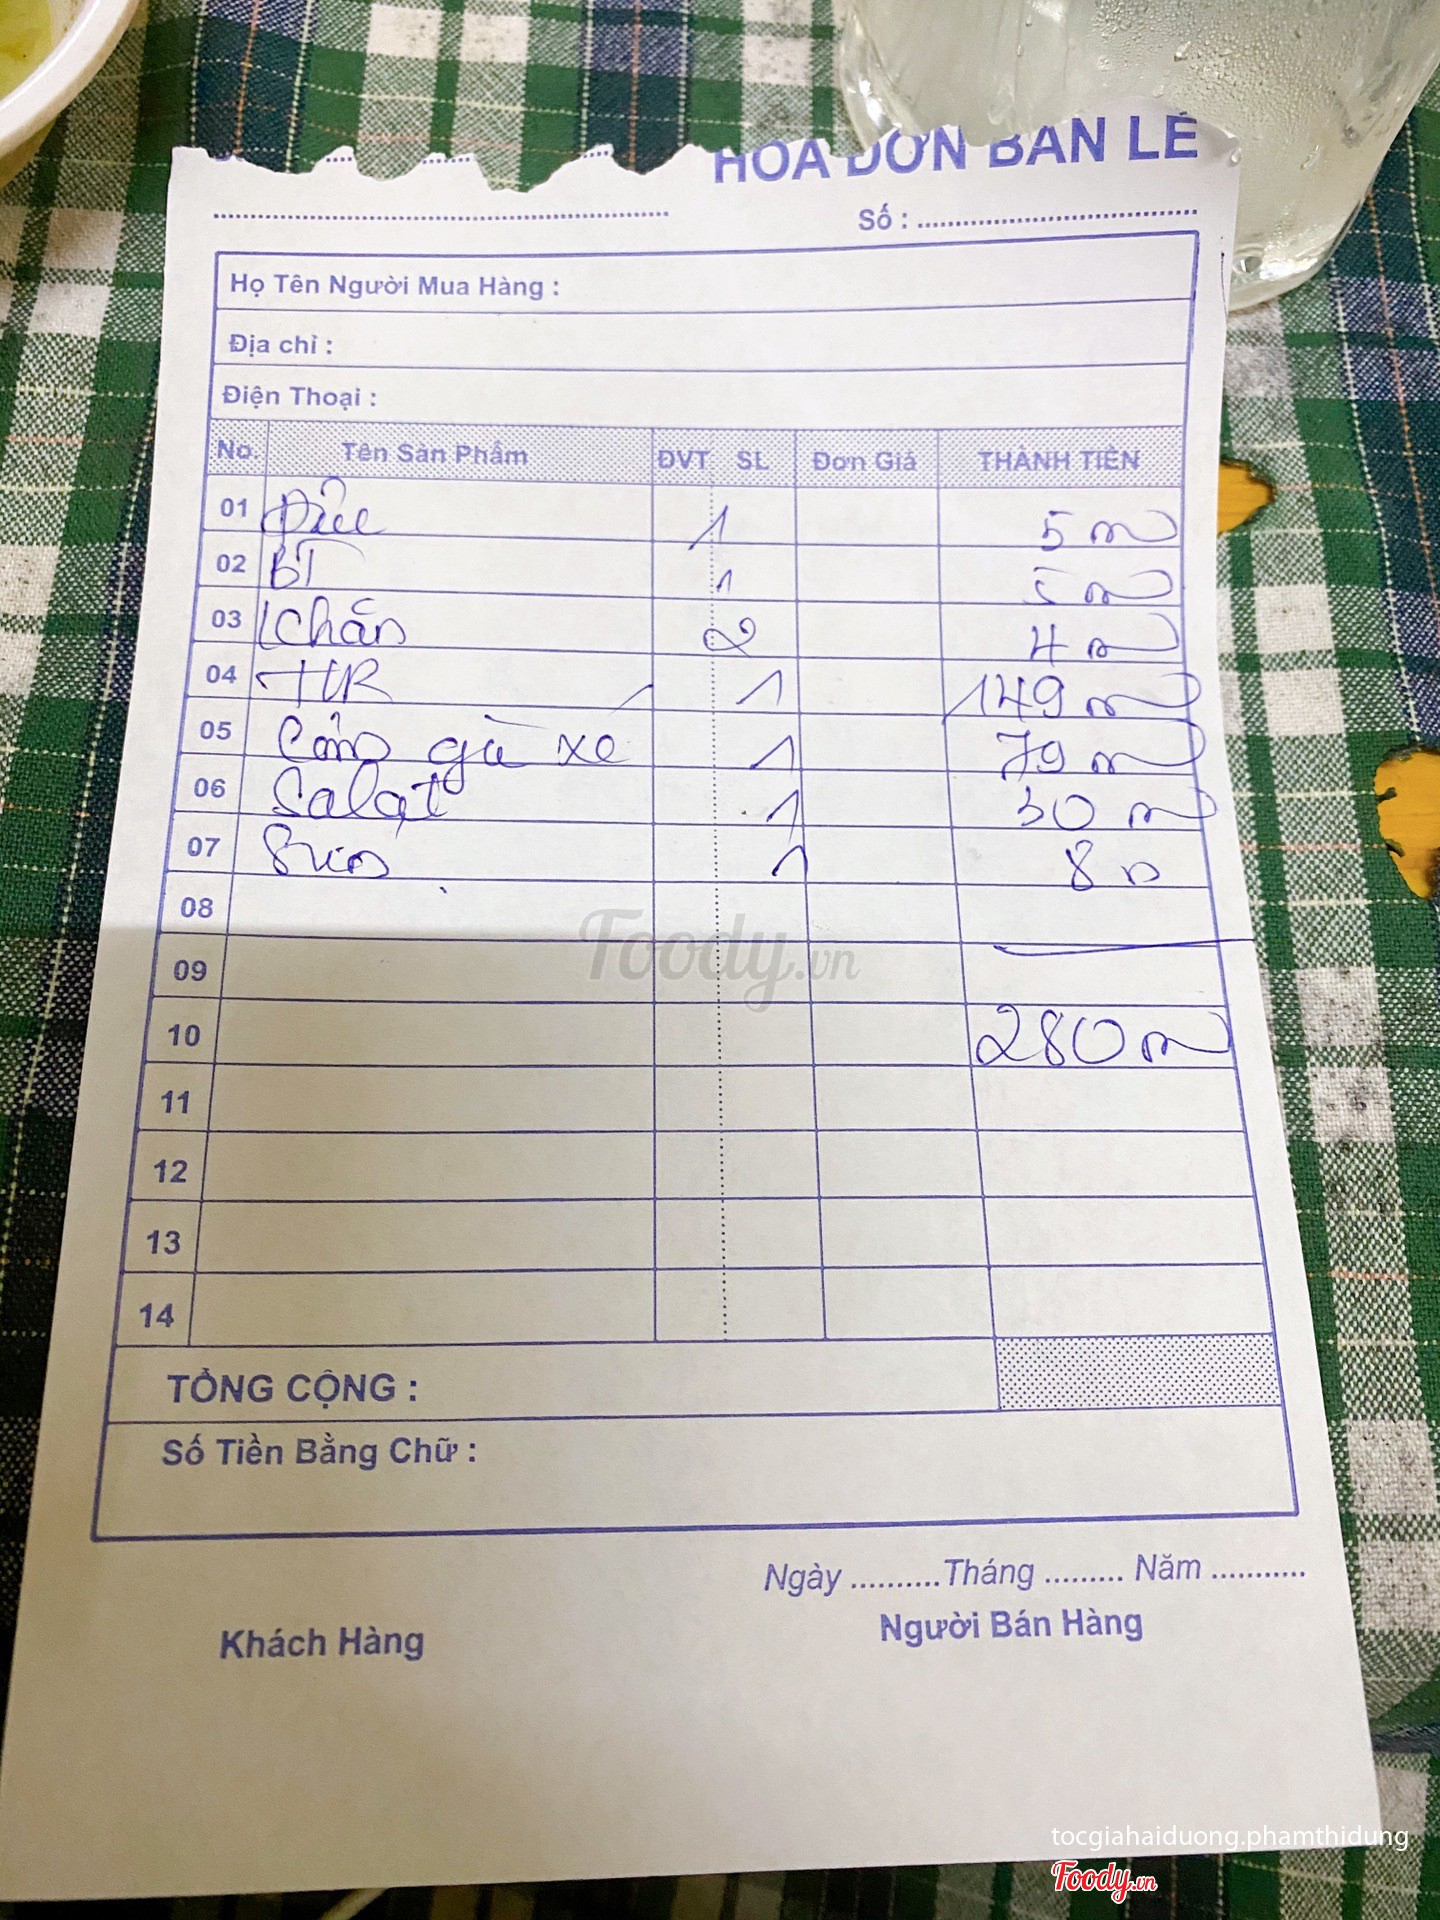 HÓA ĐƠN BÁN LẺ
Số :
Họ Tên Người Mua Hàng :
Địa chỉ :
Điện Thoại :
No. Tên Sản Phẩm ĐVT SL Đơn Giá THÀNH TIỀN
01 1 5 m
02 BT 1 5 m
03 Khăn 2 4 m
04 1 149 m
05 Cơm gà xe 1 79 m
06 Salat 1 30 m
07 1 8 n
08
Foody.vn
09
10 280 m
11
12
13
14
TỔNG CỘNG :
Số Tiền Bằng Chữ :
Ngày ..........Tháng ......... Năm ...........
Khách Hàng Người Bán Hàng
tocgiahaiduong.phamthidung
Foody.vn